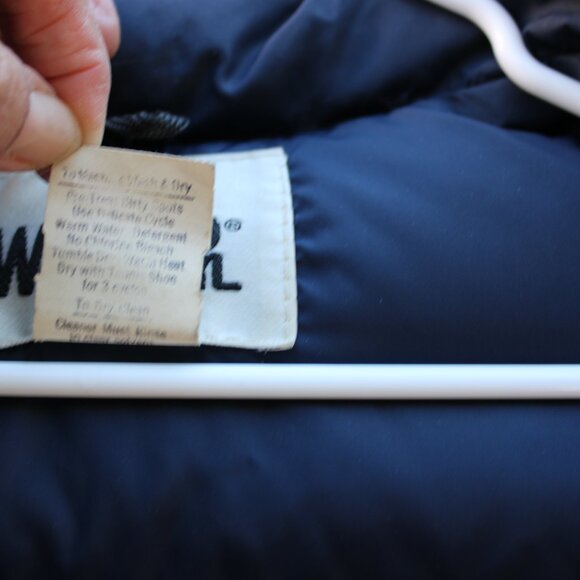 To Machine Wash & Dry
Pre-Treat Dirty Spots
Use Delicate Cycle
Warm Water Detergent
No Chlorine Bleach
Tumble Dry Warm Heat
Dry with Tennis Shoe
for 3 cycles
To Dry Clean
Cleaner Must Rinse
W
®